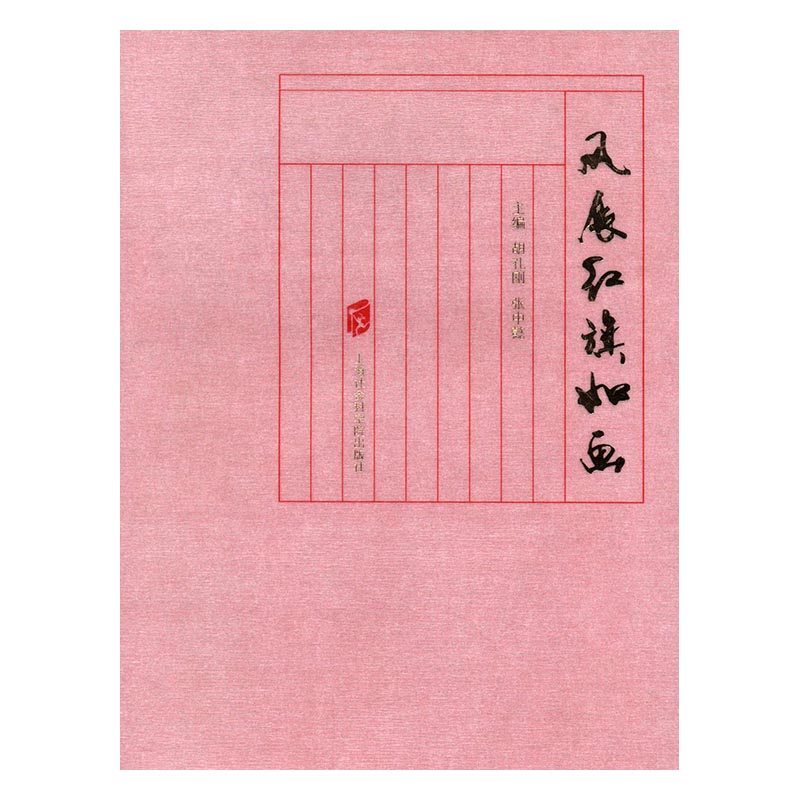 风展红旗如画
主编 胡礼刚 张中
上海社会科学院出版社